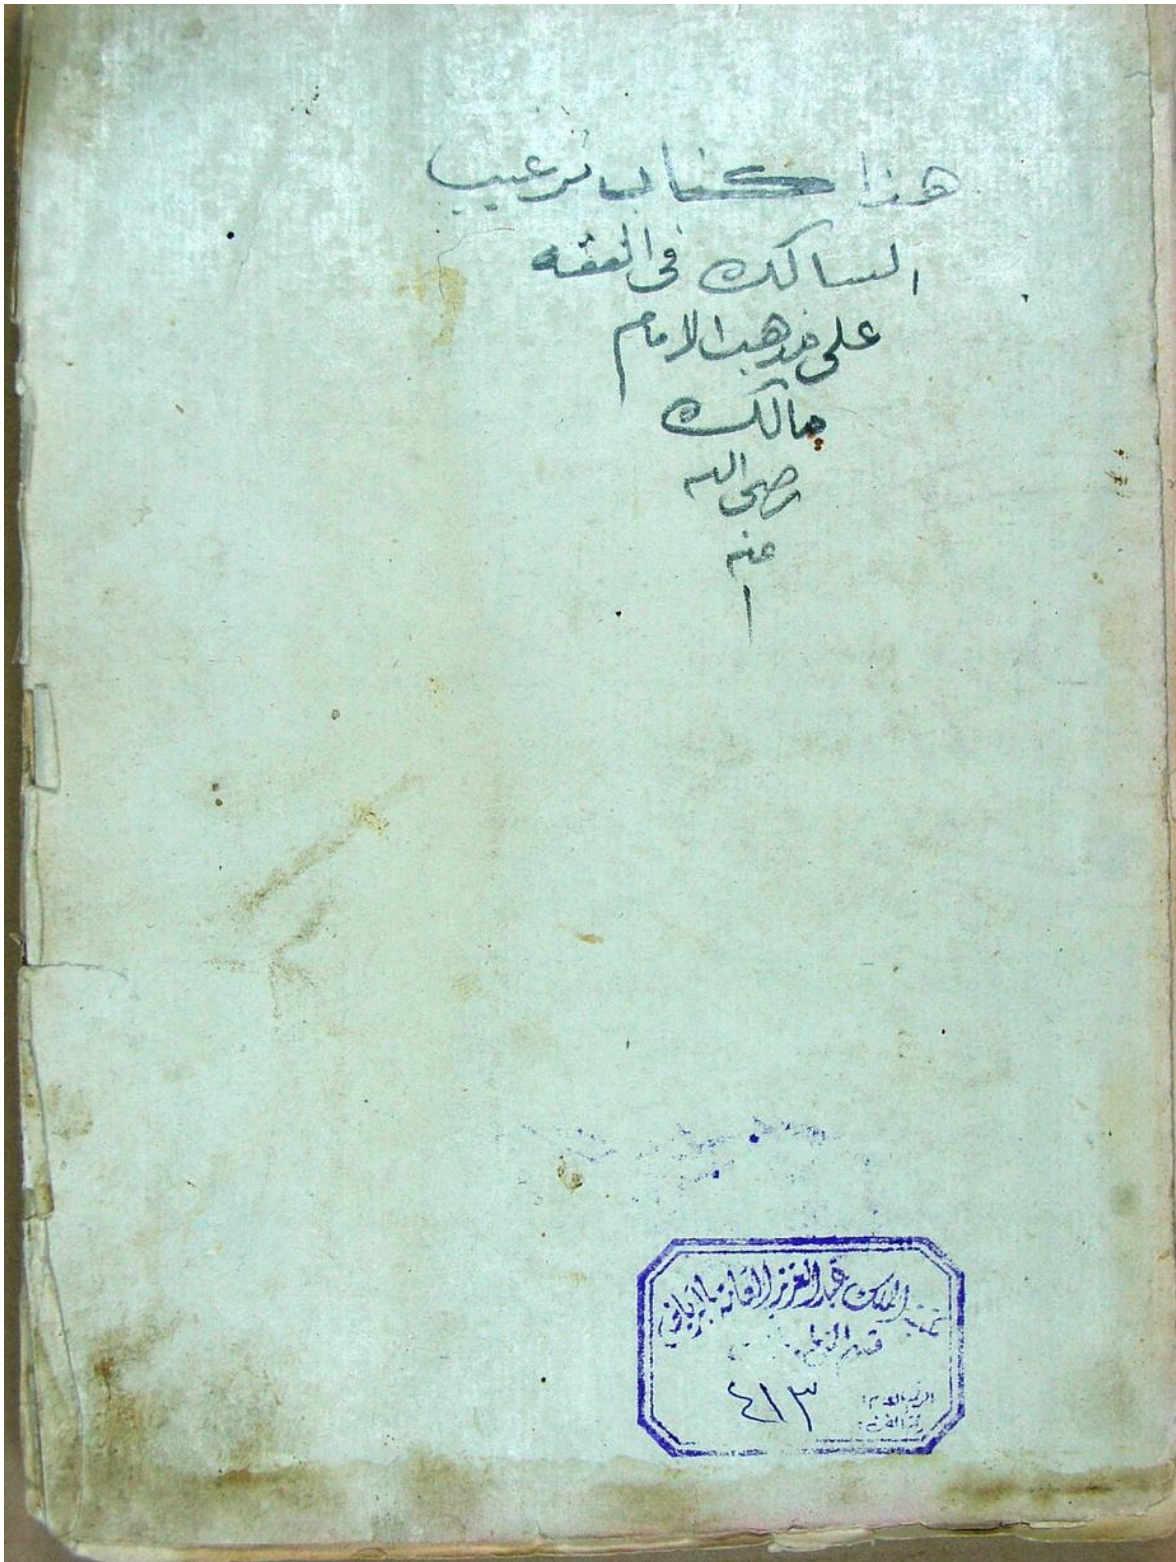 هذا كتاب ترغيب
السالك في الفقه
على مذهب الامام
مالك
رضى الله
عنه
ا
مكتبة الملك عبد العزيز العامة بالرياض
قسم المخطوطات
الرقم العام:
٤١٣
رقم الفن: